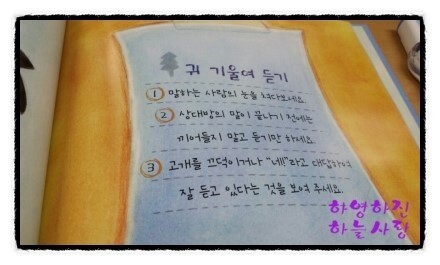 귀 기울여 듣기
① 말하는 사람의 눈을 쳐다보세요.
② 상대방의 말이 끝나기 전에는
끼어들지 말고 듣기만 하세요.
③ 고개를 끄덕이거나 "네"라고 대답하여
잘 듣고 있다는 것을 보여 주세요.
하영하진
하늘사랑